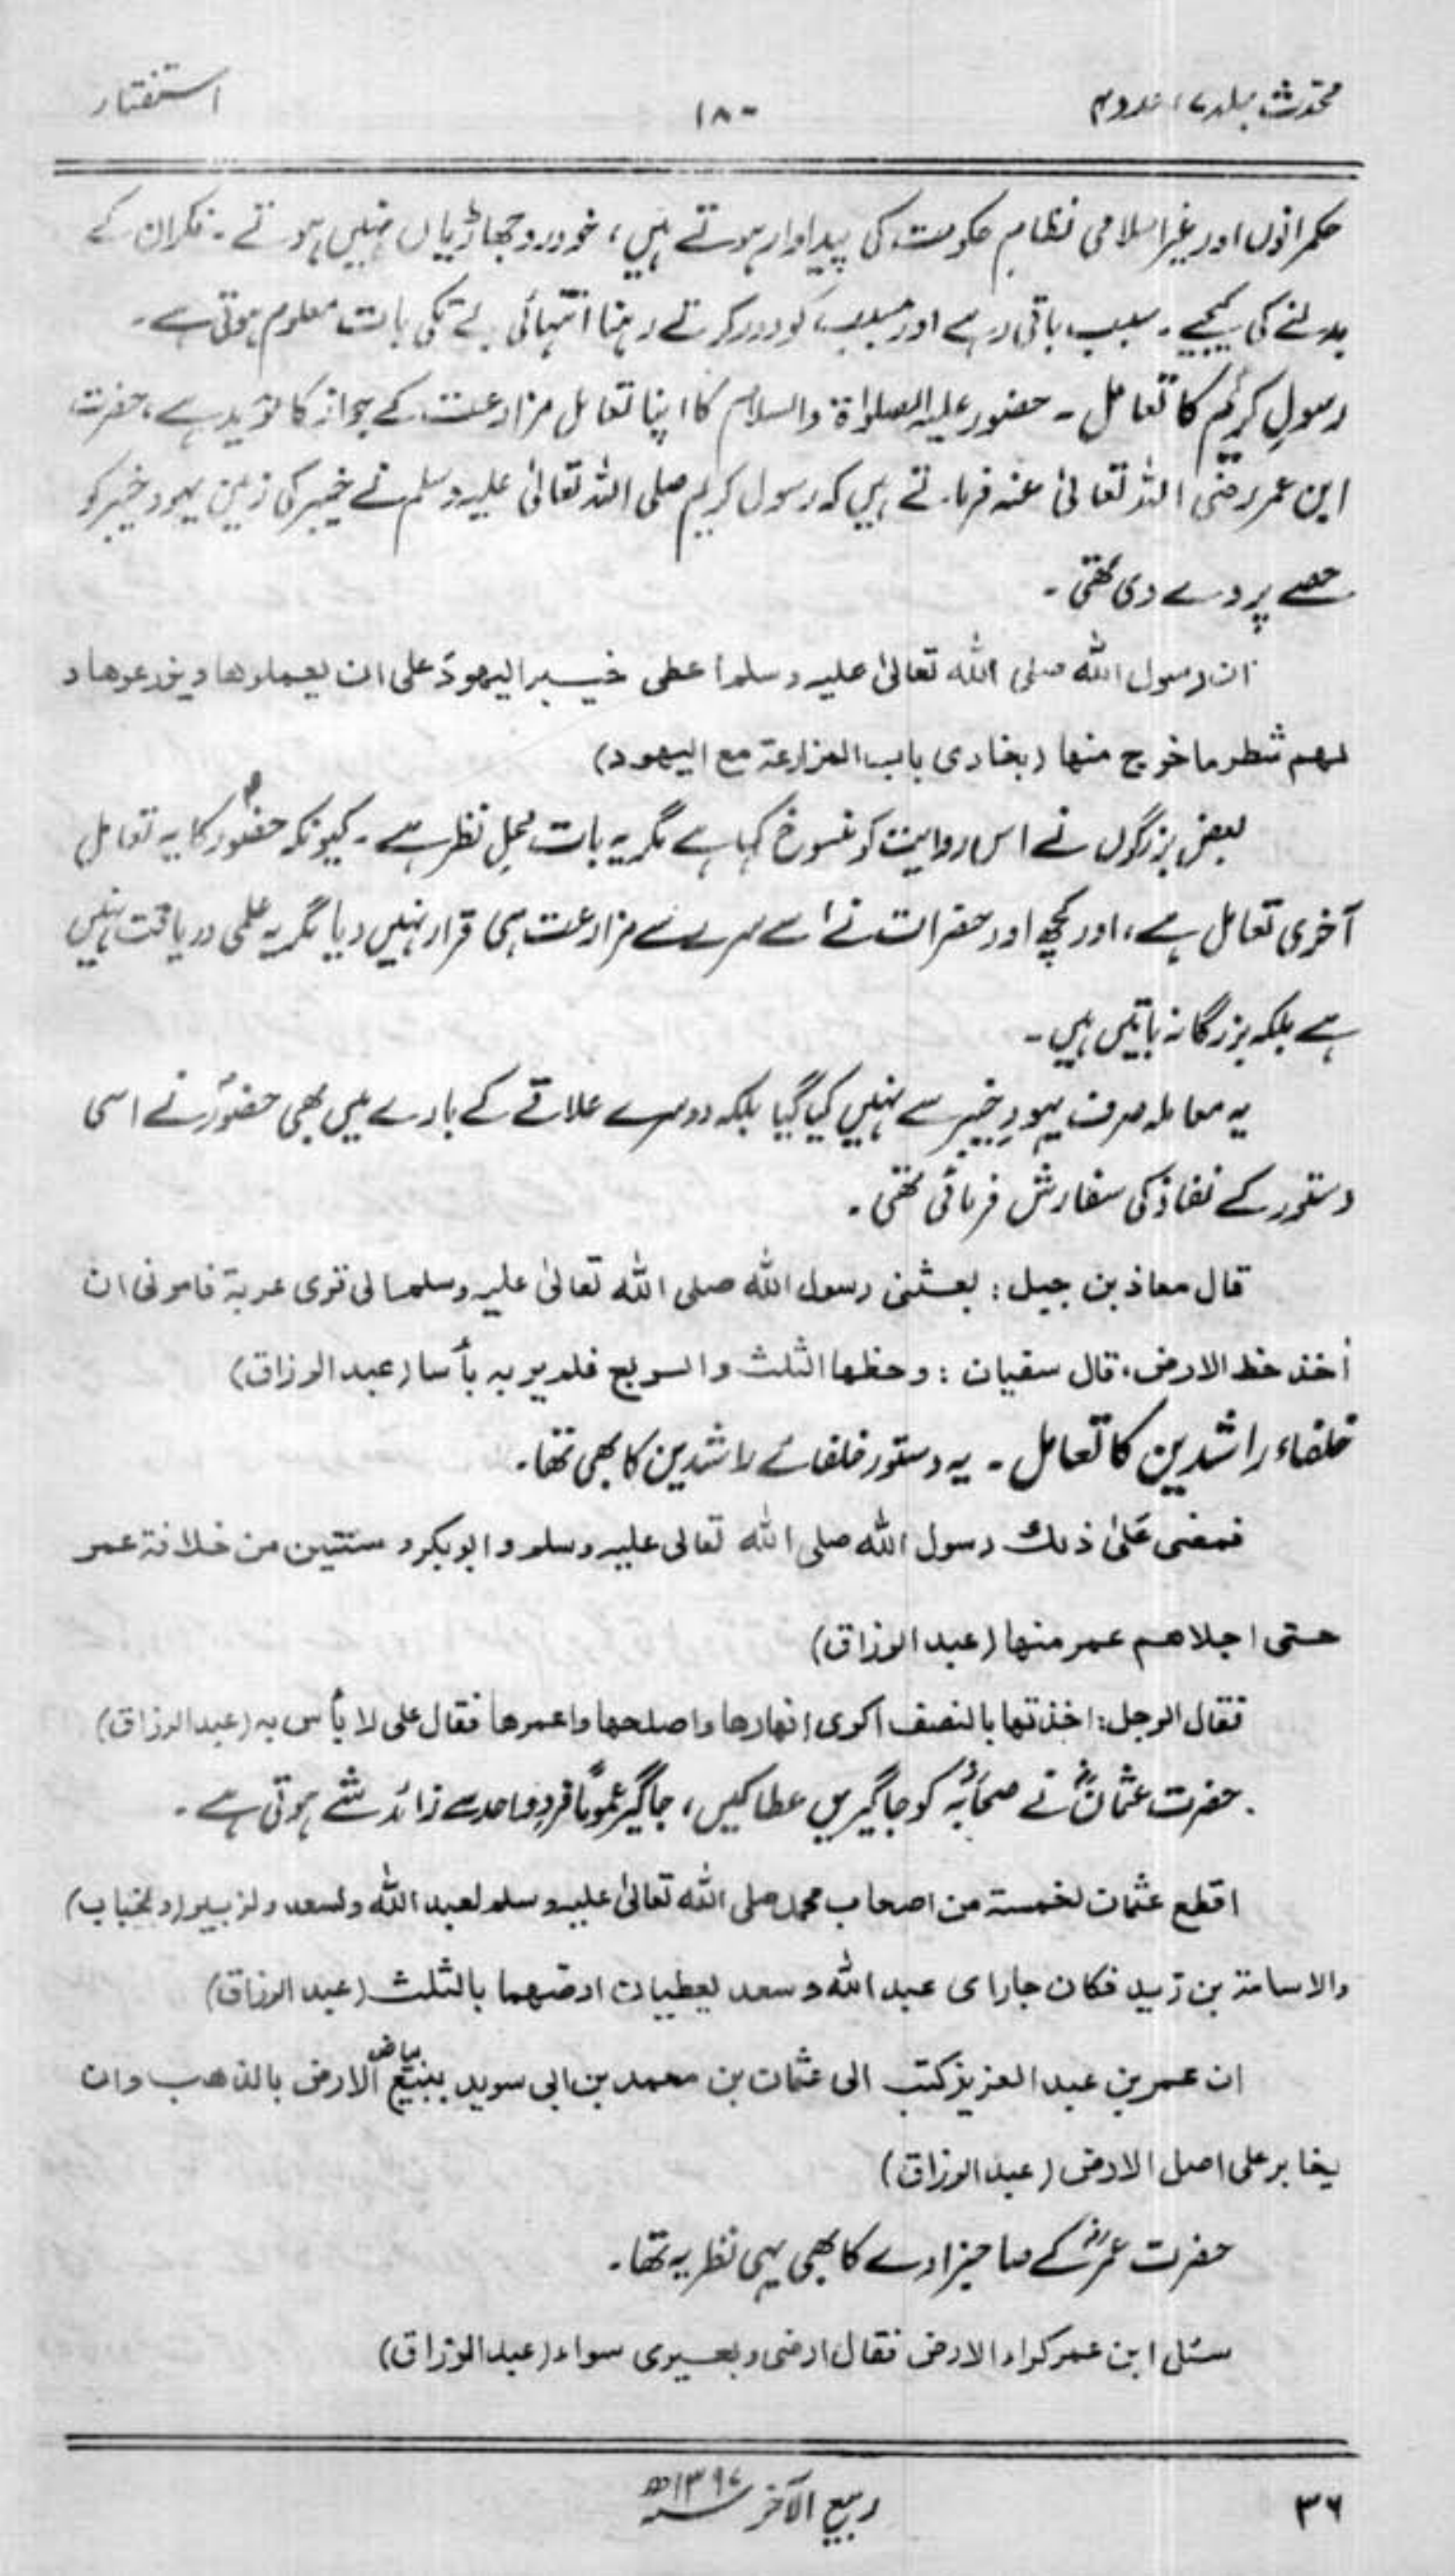 محدث جلد ۷، عدد ۴
۱۸۰
استفتار
حکمرانوں اور غیر اسلامی نظام حکومت کی پیداوار ہوتے ہیں، خودرو جھاڑیاں نہیں ہوتے۔ فکر ان کے
بدلنے کی کیجیے۔ سبب باقی رہے اور مسبب کو دور کرتے رہنا انتہائی بے تکی بات معلوم ہوتی ہے۔
رسول کریم کا تعامل۔ حضور علیہ الصلوٰۃ والسلام کا اپنا تعامل مزارعت کے جواز کا مؤید ہے، حضرت
ابن عمر رضی اللہ تعالیٰ عنہ فرماتے ہیں کہ رسول کریم صلی اللہ تعالیٰ علیہ وسلم نے خیبر کی زمین یہود خیبر کو
حصے پر دے دی تھی۔
ان رسول اللہ صلی اللہ تعالیٰ علیہ وسلم اعطی خیبر الیہود علی ان یعملوھا ویزرعوھا و
لہم شطر ما خرج منہا (بخاری باب المزارعۃ مع الیہود)
بعض بزرگوں نے اس روایت کو منسوخ کہا ہے مگر یہ بات محل نظر ہے۔ کیونکہ حضورؐ کا یہ تعامل
آخری تعامل ہے، اور کچھ اور حضرات نے اسے سرے سے مزارعت ہی قرار نہیں دیا مگر یہ علمی دریافت نہیں
ہے بلکہ بزرگانہ باتیں ہیں۔
یہ معاملہ صرف یہودِ خیبر سے نہیں کیا گیا بلکہ دوسرے علاقے کے بارے میں بھی حضورؐ نے اسی
دستور کے نفاذ کی سفارش فرمائی تھی۔
قال معاذ بن جبل: بعثنی رسول اللہ صلی اللہ تعالیٰ علیہ وسلم الی قری عربۃ فامرنی ان
أخذ خظ الارض، قال سفیان: وحظہا الثلث والربع فلم یر بہ بأسا (عبد الرزاق)
خلفاء راشدین کا تعامل۔ یہ دستور خلفائے راشدین کا بھی تھا۔
فمضی علیٰ ذلک رسول اللہ صلی اللہ تعالی علیہ وسلم وابوبکر و سنتین من خلافۃ عمر
حتی اجلاھم عمر منہا (عبد الرزاق)
فقال الرجل: اخذتہا بالنصف اکری انہارھا واصلحہا واعمرھا فقال علی لا بأس بہ (عبد الرزاق)
حضرت عثمانؓ نے صحابہؓ کو جاگیریں عطا کیں، جاگیر عموماً فرد واحد سے زائد شے ہوتی ہے۔
اقطع عثمان لخمسۃ من اصحاب محمد صلی اللہ تعالیٰ علیہ وسلم لعبد اللہ ولسعد ولزبیر (ولخباب)
والاسامۃ بن زید فکان جارای عبد اللہ وسعد یعطیان ارضہما بالثلث (عبد الرزاق)
ان عمر بن عبد العزیز کتب الی عثمان بن محمد بن ابی سوید ببیع بیاض الارض بالذھب وان
یخابر علی اصل الارض (عبد الرزاق)
حضرت عمرؓ کے صاحبزادے کا بھی یہی نظریہ تھا۔
سئل ابن عمر کراء الارض فقال ارضی وبعیری سواء (عبد الرزاق)
۳۶
ربیع الآخر سنہ ۱۳۹۷ھ